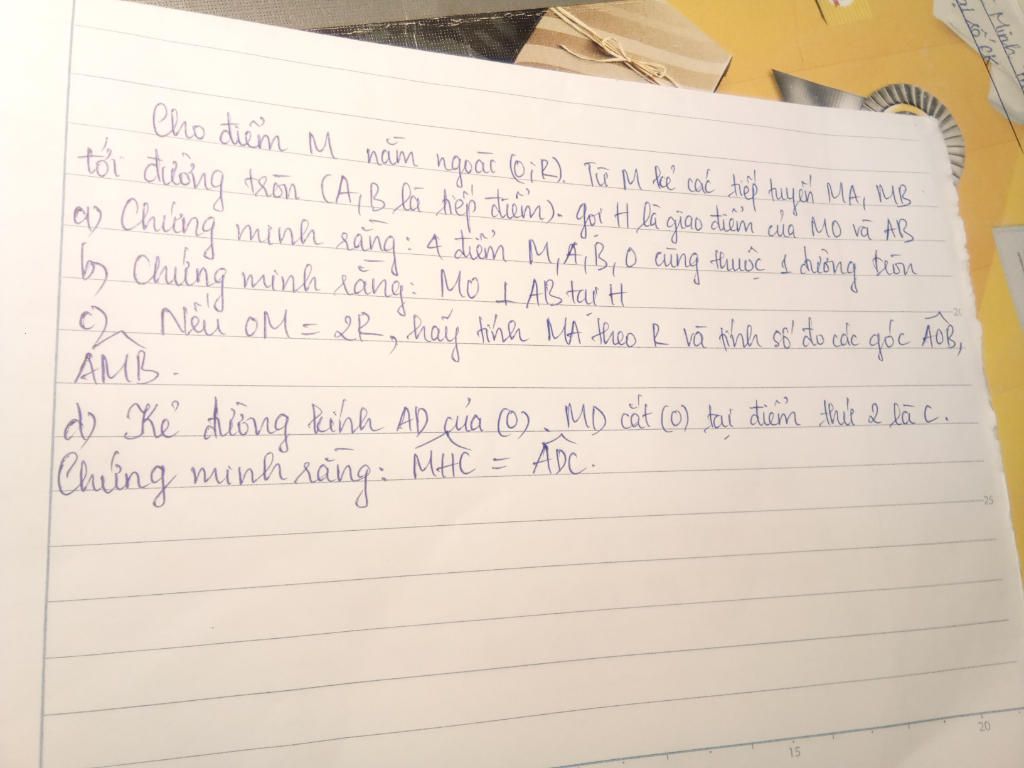 Cho điểm M nằm ngoài (O;R). Từ M kẻ các tiếp tuyến MA, MB
tới đường tròn (A,B là tiếp điểm). gọi H là giao điểm của MO và AB
a) Chứng minh rằng: 4 điểm M,A,B,O cùng thuộc 1 đường tròn
b) Chứng minh rằng: MO ⊥ AB tại H
c) Nếu OM = 2R, hãy tính MA theo R và tính số đo các góc AOB,
AMB.
d) Kẻ đường kính AD của (O). MD cắt (O) tại điểm thứ 2 là C.
Chứng minh rằng: MHC = ADC.
Minh
số CK
20
25
15
20